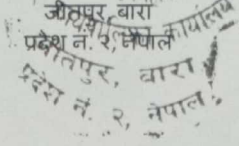 जीतपुर, बारा
प्रदेश नं. २, नेपाल
कार्यालय
जीतपुर, बारा
प्रदेश नं. २, नेपाल